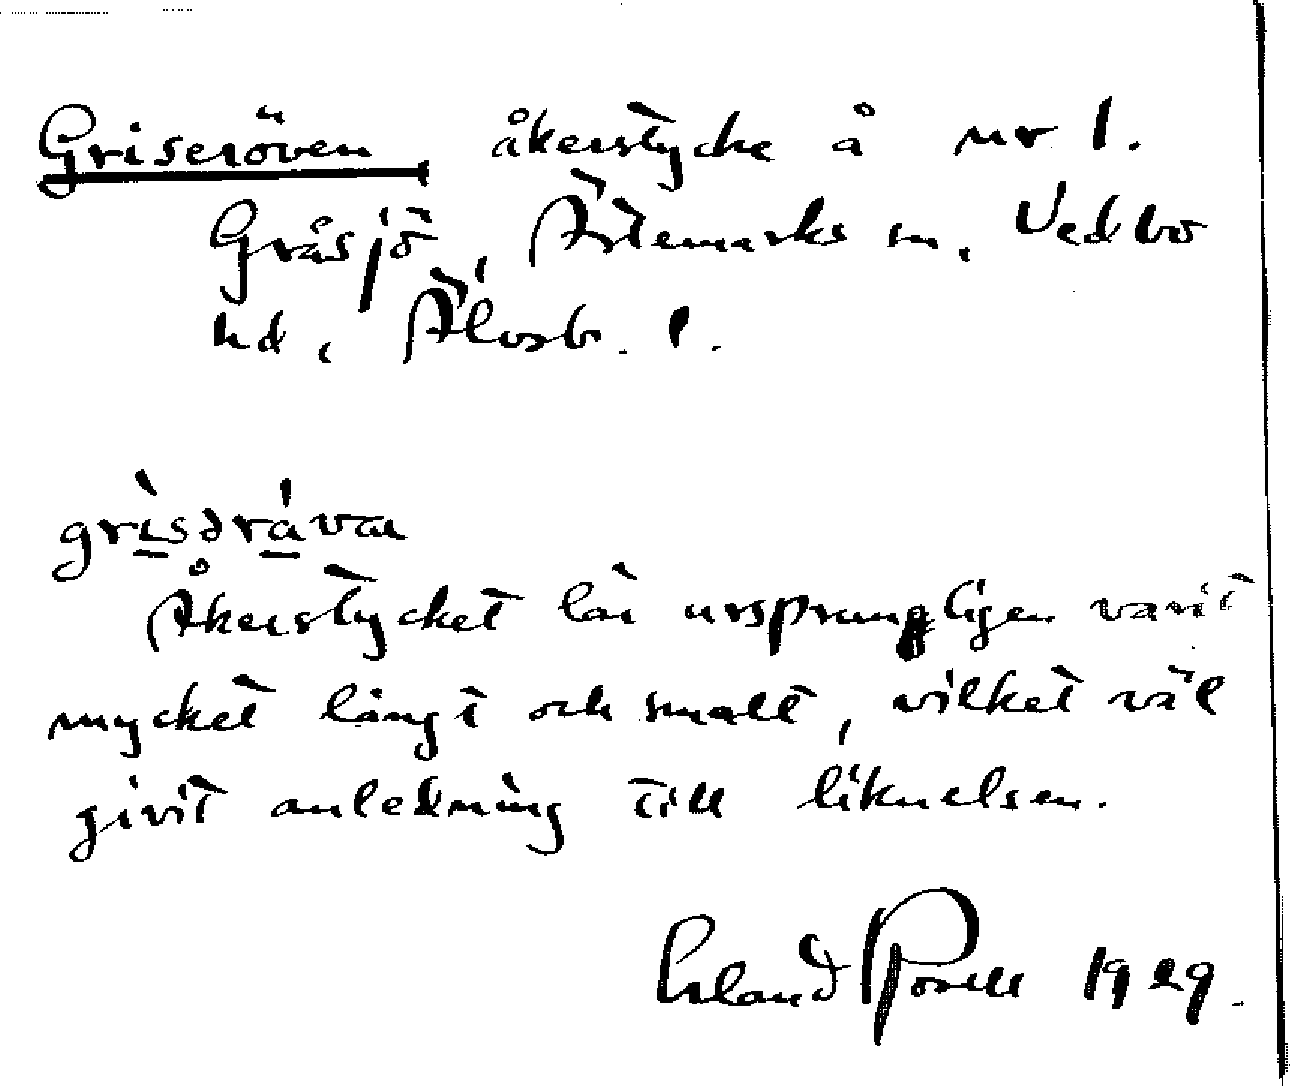 Griseröven, åkerstycke å nr 1.
Gråsjö, Ärtemarks sn, Vedbo
hd, Älvsb. l.
grìsərá̱van
Åkerstycket lär ursprungligen varit
mycket långt och smalt, vilket väl
givit anledning till liknelsen.
Erland Rosell 1929.